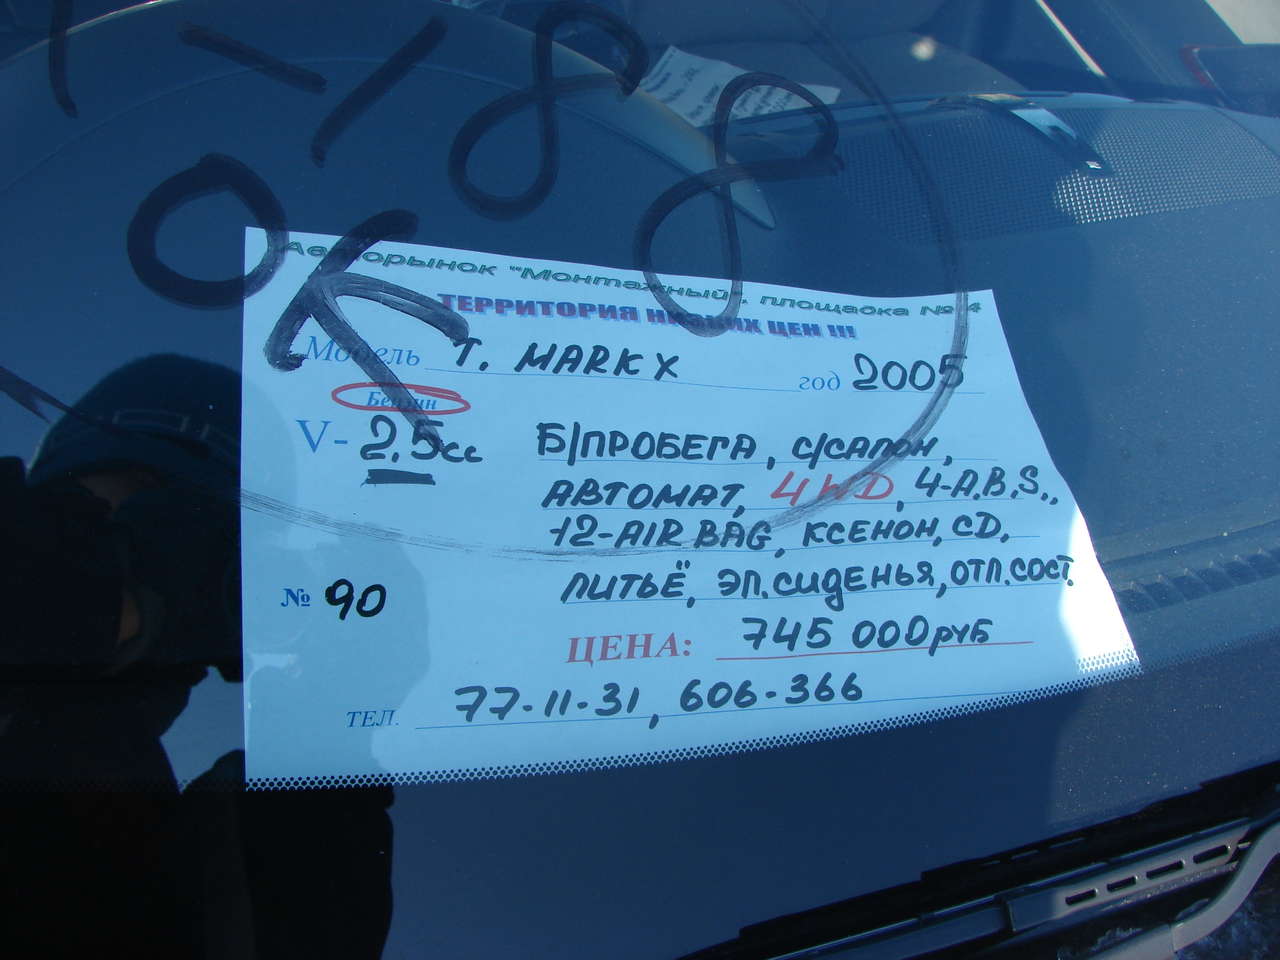 1-188
OK
Авторынок "Монтажный", площадка № 4
ТЕРРИТОРИЯ НИЗКИХ ЦЕН !!!
Модель Т. MARK X год 2005
Бензин
V- 2,5сс Б/ПРОБЕГА, С/САЛОН,
АВТОМАТ, 4WD, 4-A.B.S.,
12-AIR BAG, КСЕНОН, CD,
ЛИТЬЁ, ЭЛ.СИДЕНЬЯ, ОТЛ.СОСТ.
№ 90
ЦЕНА: 745 000руб
ТЕЛ. 77-11-31, 606-366